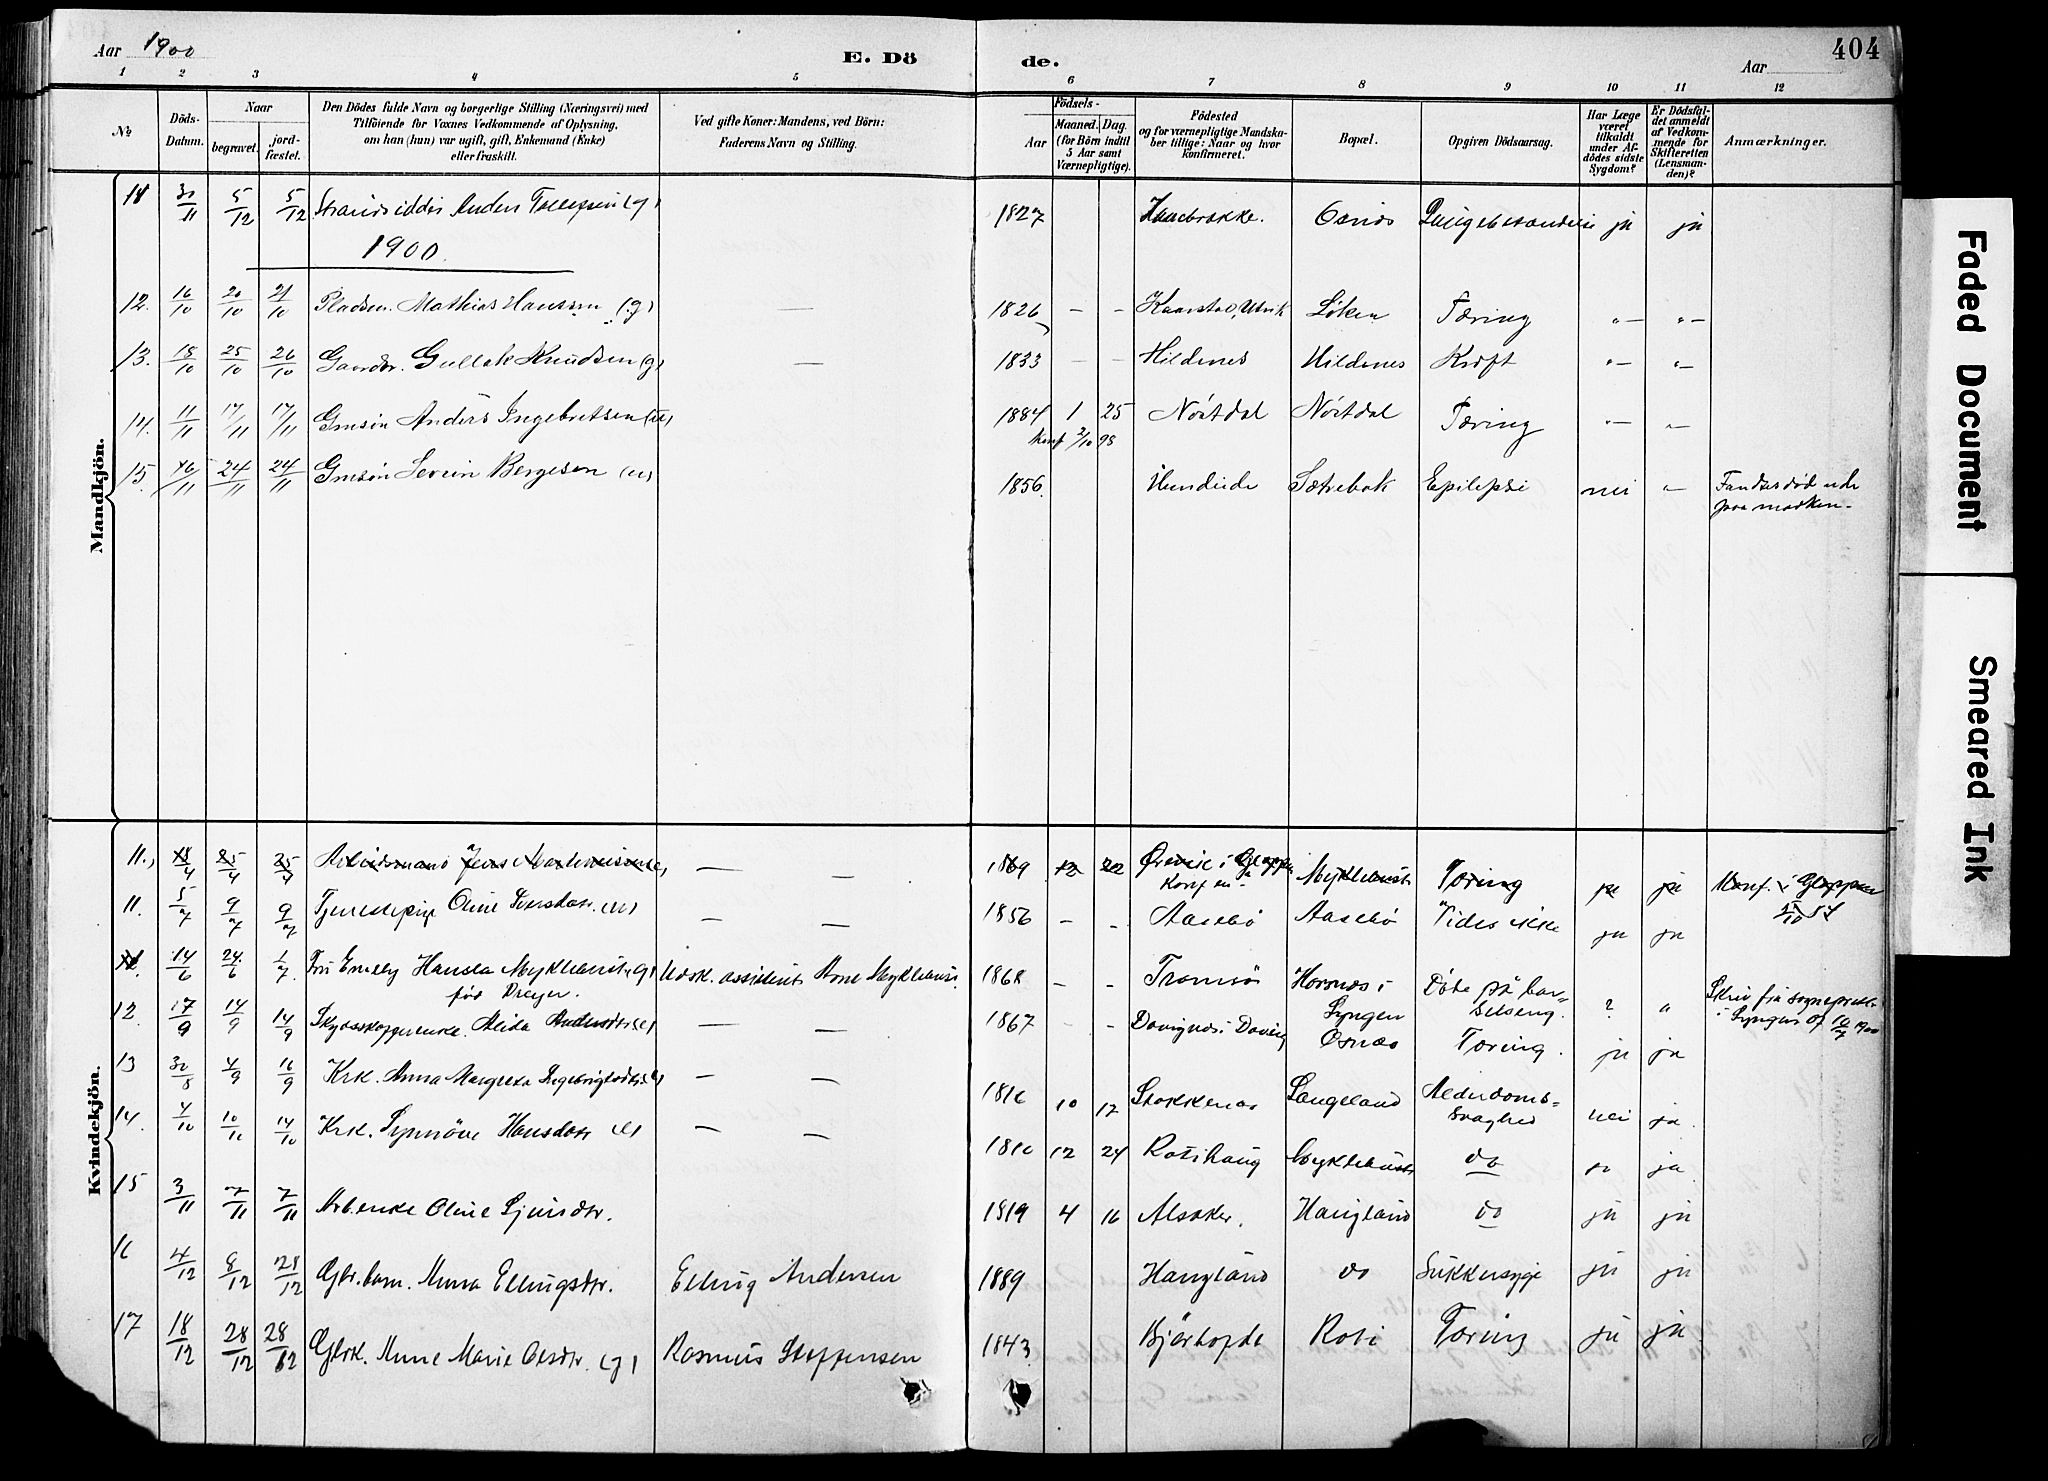 Aar 1900
E. Dö
de.
Aar
404
1 2 3 4 5 6 7 8 9 10 11 12
No
Döds-
Datum.
Naar
begravet.
jord-
fæstet.
Den Dödes fulde Navn og borgerlige Stilling (Næringsvei) med
Tilföiende for Voxnes Vedkommende af Oplysning,
om han (hun) var ugift, gift, Enkemand (Enke)
eller fraskilt.
Ved gifte Koner: Mandens, ved Börn:
Faderens Navn og Stilling.
Födsels-
Aar
Maaned. Dag.
(for Börn indtil
5 Aar samt
Værnepligtige).
Födested
og for værnepligtige Mandska-
ber tillige: Naar og hvor
konfirmeret.
Bopæl.
Opgiven Dödsaarsag.
Har Læge
været
tilkaldt
under Af-
dödes sidste
Sygdom?
Er Dödsfal-
det anmeldt
af Vedkom-
mende for
Skifteretten
(Lensman-
den)?
Anmærkninger.
Mandkjön.
18 30/11 5/12 5/12 Strandsidder Anders Tollefsen (g) 1827 Osnes ja ja
1900
12. 16/10 20/10 21/10 Pladsm. Mathias Hanssen (g) — 1826 - - Løken Tæring "— "—
13. 18/10 25/10 26/10 Gaardbr. Gullak Knudsen (g) — 1833 - - Hildenes Hildenes Kræft "— "—
14. 11/11 17/11 17/11 Gmsøn Anders Ingebretsen (u) 1884 1 25 Nørtdal Nørtdal Tæring "— "—
Konf 2/10 98
15. 16/11 24/11 24/11 Gmsøn Severin Bergesen (u) 1856. Hundeide Sætrebak Epilepsi nei "— Fandtes død ude
paa marken.
Kvindekjön.
11., 18/4 25/4 25/4 — — 1869 12 22 Myklebust Tæring ja ja Konf. i Gloppen
11. 5/7 9/7 9/7 Tjenestepige Oline Iversdatr. (u) — — 1856 - - Aasebø Aasebø Vides ikke ja ja
12. 14/6 24/6 1/7. Fru Emely Hansea Myklebust (g) Udsk. assistent Arne Myklebust. 1868 - - Tromsø Havnæs i
Lyngen Døde på bar-
selseng. ? "
født Dreyer.
12. 17/9 14/9 14/9 Skydsskafferenke. Alida Andersdtr (e) — — 1867 - - Osnæs Tæring. ja ja
13 30/8 4/9 16/9 Krk. Anna Margreta Ingebrigtsdtr. (e) — — 1816 10 12 Stokkenes Langeland Alderdoms-
svaghed nei ja
14. 4/10 10/10 14/10 Krk. Synnöve Hansdatr (e) — — 1810 12 24 Rotihaug Myklebust do ja
15 3/11 7/11 7/11 Arb.enke Oline Sjursdtr. 1819 4 16 Alsaker. Haugland do ja ja
16 4/12 8/12 28/12 Gbr.barn. Anna Ellingsdtr. Elling Andersen 1889 Haugland do Sukkersyge ja ja
17 18/12 28/12 28/12 Gbrk. Anne Marie Olsdtr. (g) Rasmus Steffensen 1843 Roti Tæring ja ja
Faded Document
Smeared Ink